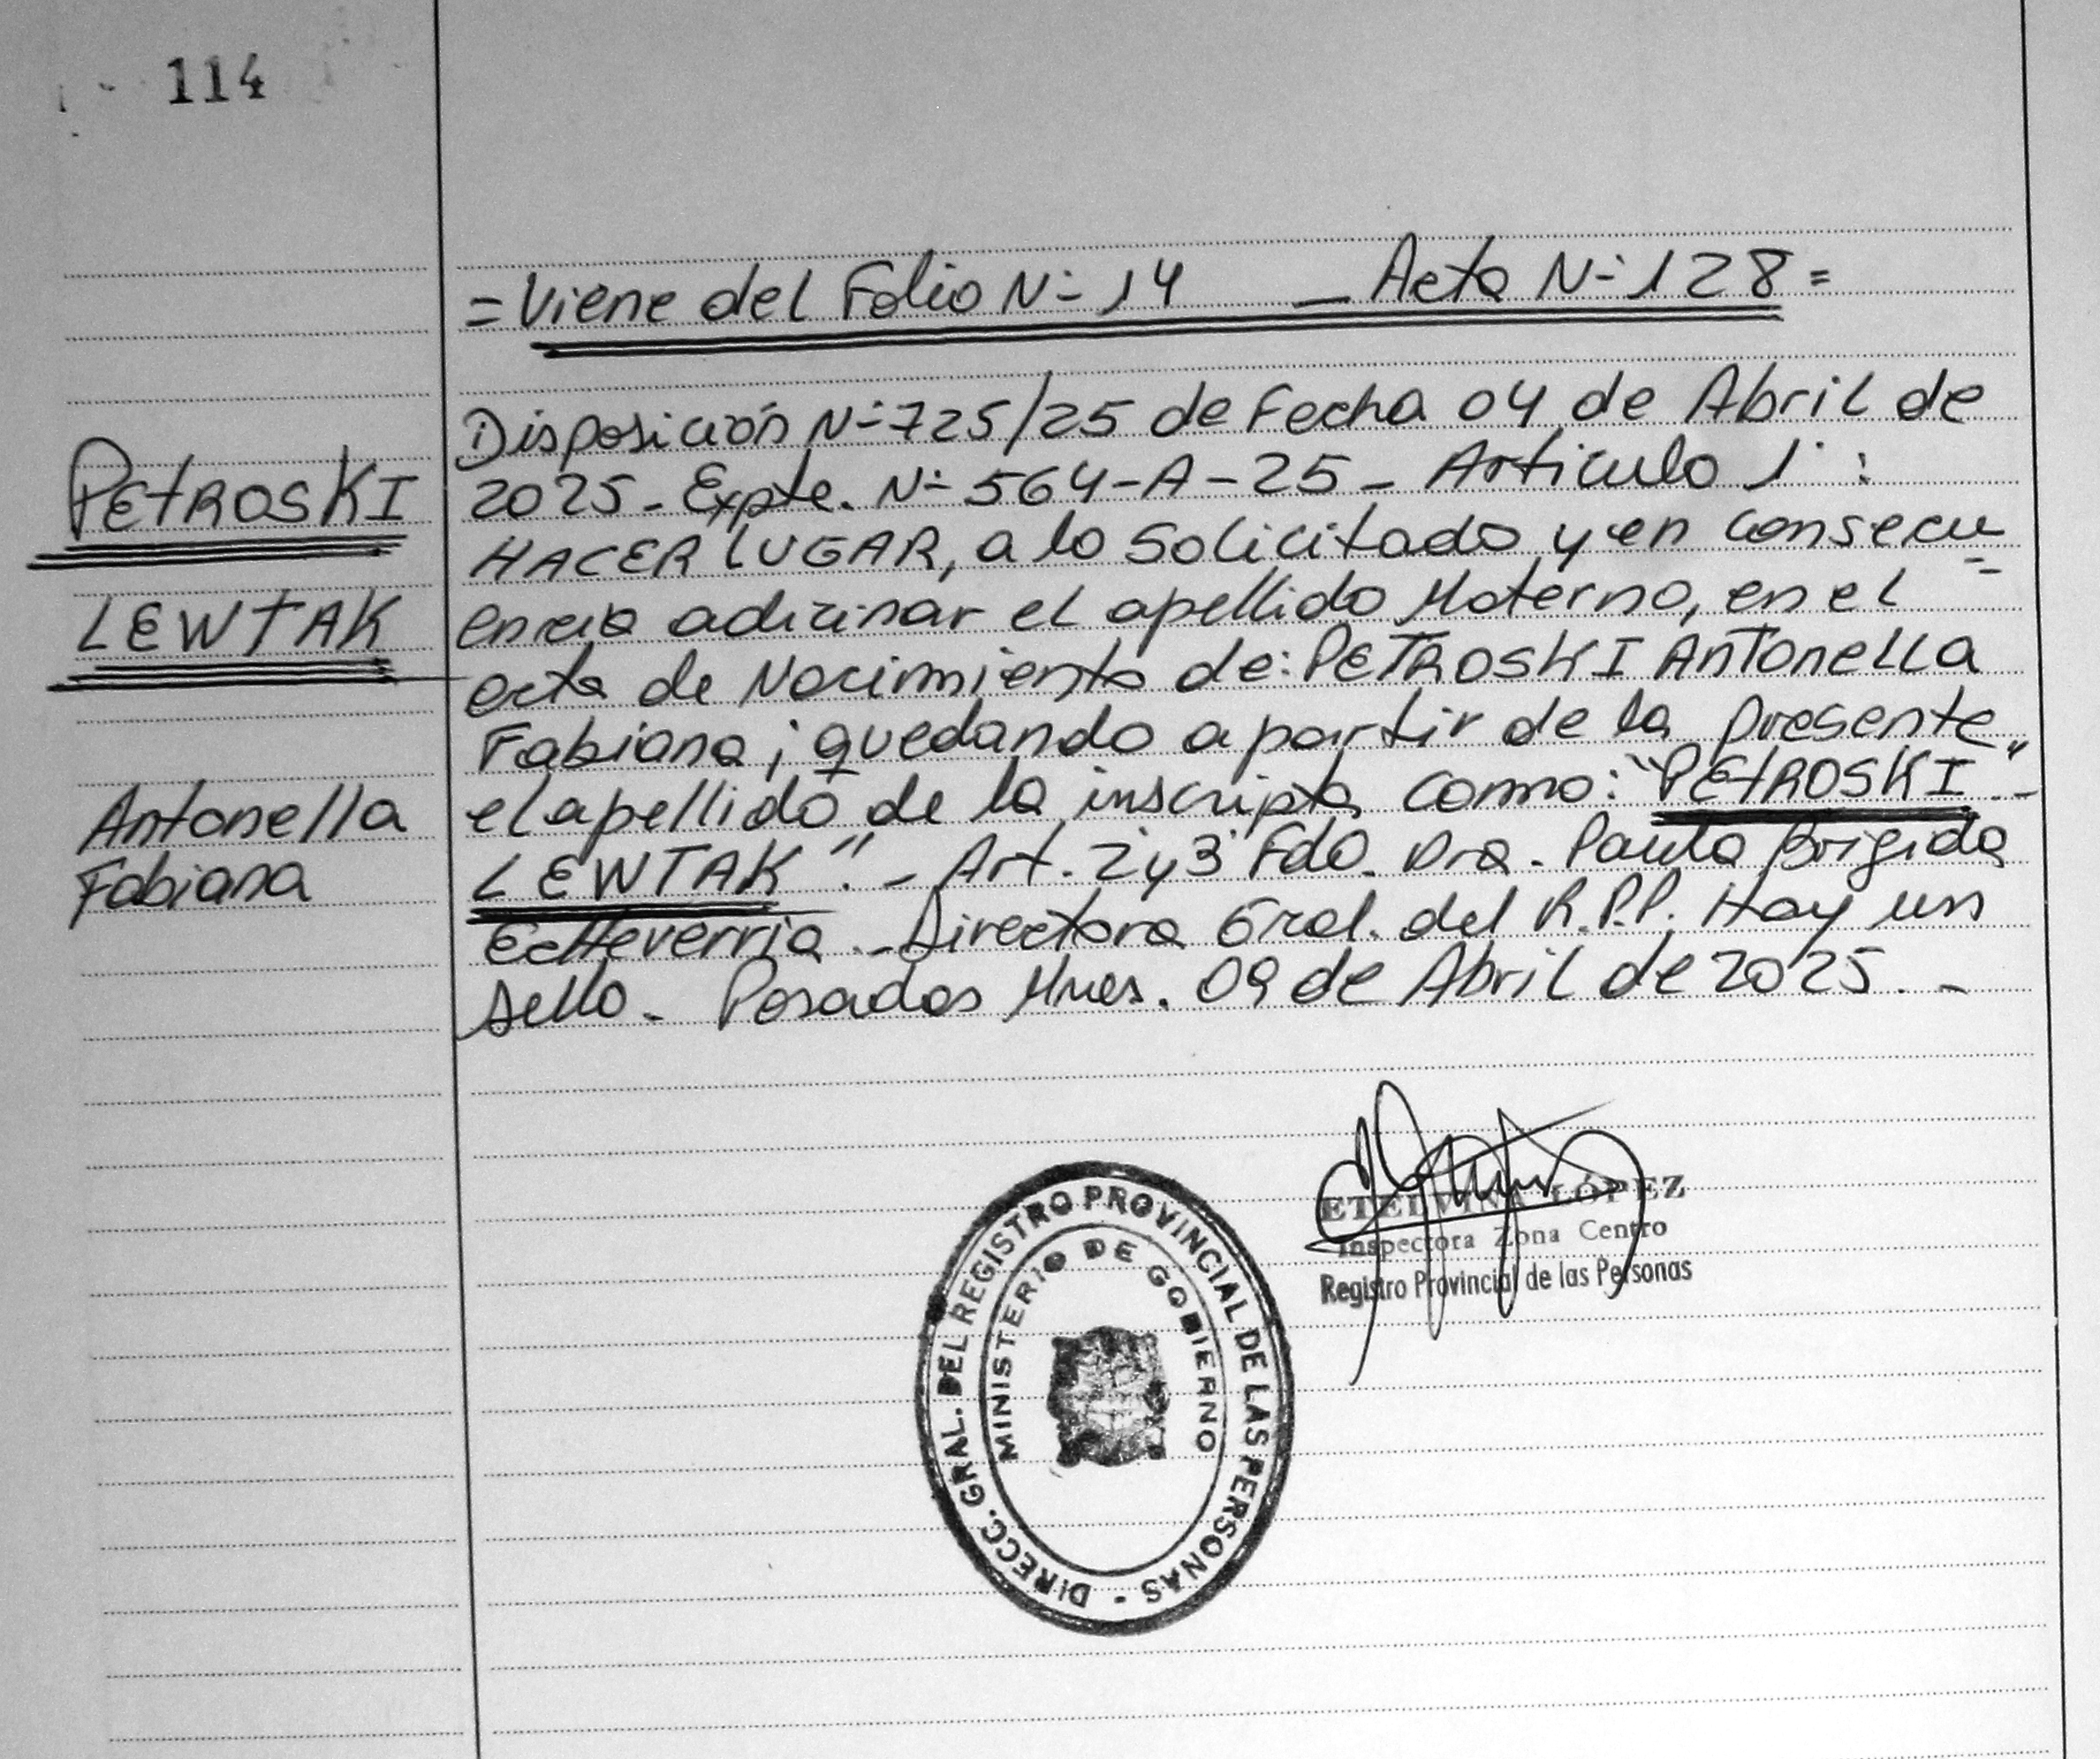 114
= Viene del Folio Nº 14 _ Acta Nº 128 =
PETROSKI
LEWTAK
Antonella
Fabiana
Disposición Nº 725/25 de Fecha 04 de Abril de
2025 - Expte. Nº 564-A-25 - Articulo 1° :
HACER LUGAR, a lo Solicitado y en consecu
encia adicinar el apellido Materno, en el
acta de Nacimiento de: PETROSKI Antonella
Fabiana; quedando a partir de la presente,
el apellido de la inscripta como: "PETROSKI" -
LEWTAK". - Art. 2 y 3° Fdo. Dra. Paula Brigida
Echeverria - Directora Gral. del R.P.P. Hay un
sello - Posadas Mnes. 09 de Abril de 2025. -
ETELVINA LÓPEZ
Inspectora Zona Centro
Registro Provincial de las Personas
DIRECC. GRAL. DEL REGISTRO PROVINCIAL DE LAS PERSONAS -
MINISTERIO DE GOBIERNO